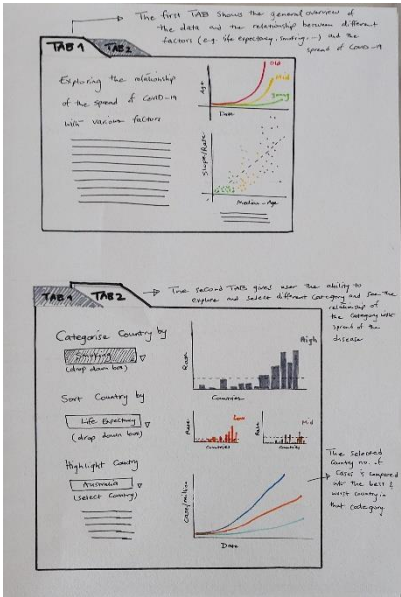 The first TAB shows the general overview of
the data and the relationship between different
factors (e.g. life expectancy, smoking, ...) and the
spread of Covid-19
TAB 1
TAB 2
Exploring the relationship
of the spread of COVID-19
with various factors
Old
Mid
young
Age
Date
Slope/Rate
Median-Age
TAB 1
TAB 2
The second TAB gives user the ability to
explore and select different category and see the
relationship of
the category with
spread of the
disease
Categorise Country by
(drop down box)
Sort Country by
Life Expectancy
(drop down box)
Highlight Country
Australia
(select country)
High
Rate
Countries
Low
Rate
Countries
Mid
Rate
Countries
Case/million
Date
The selected
Country no. of
Cases is compared
with the best &
worst country in
that category.